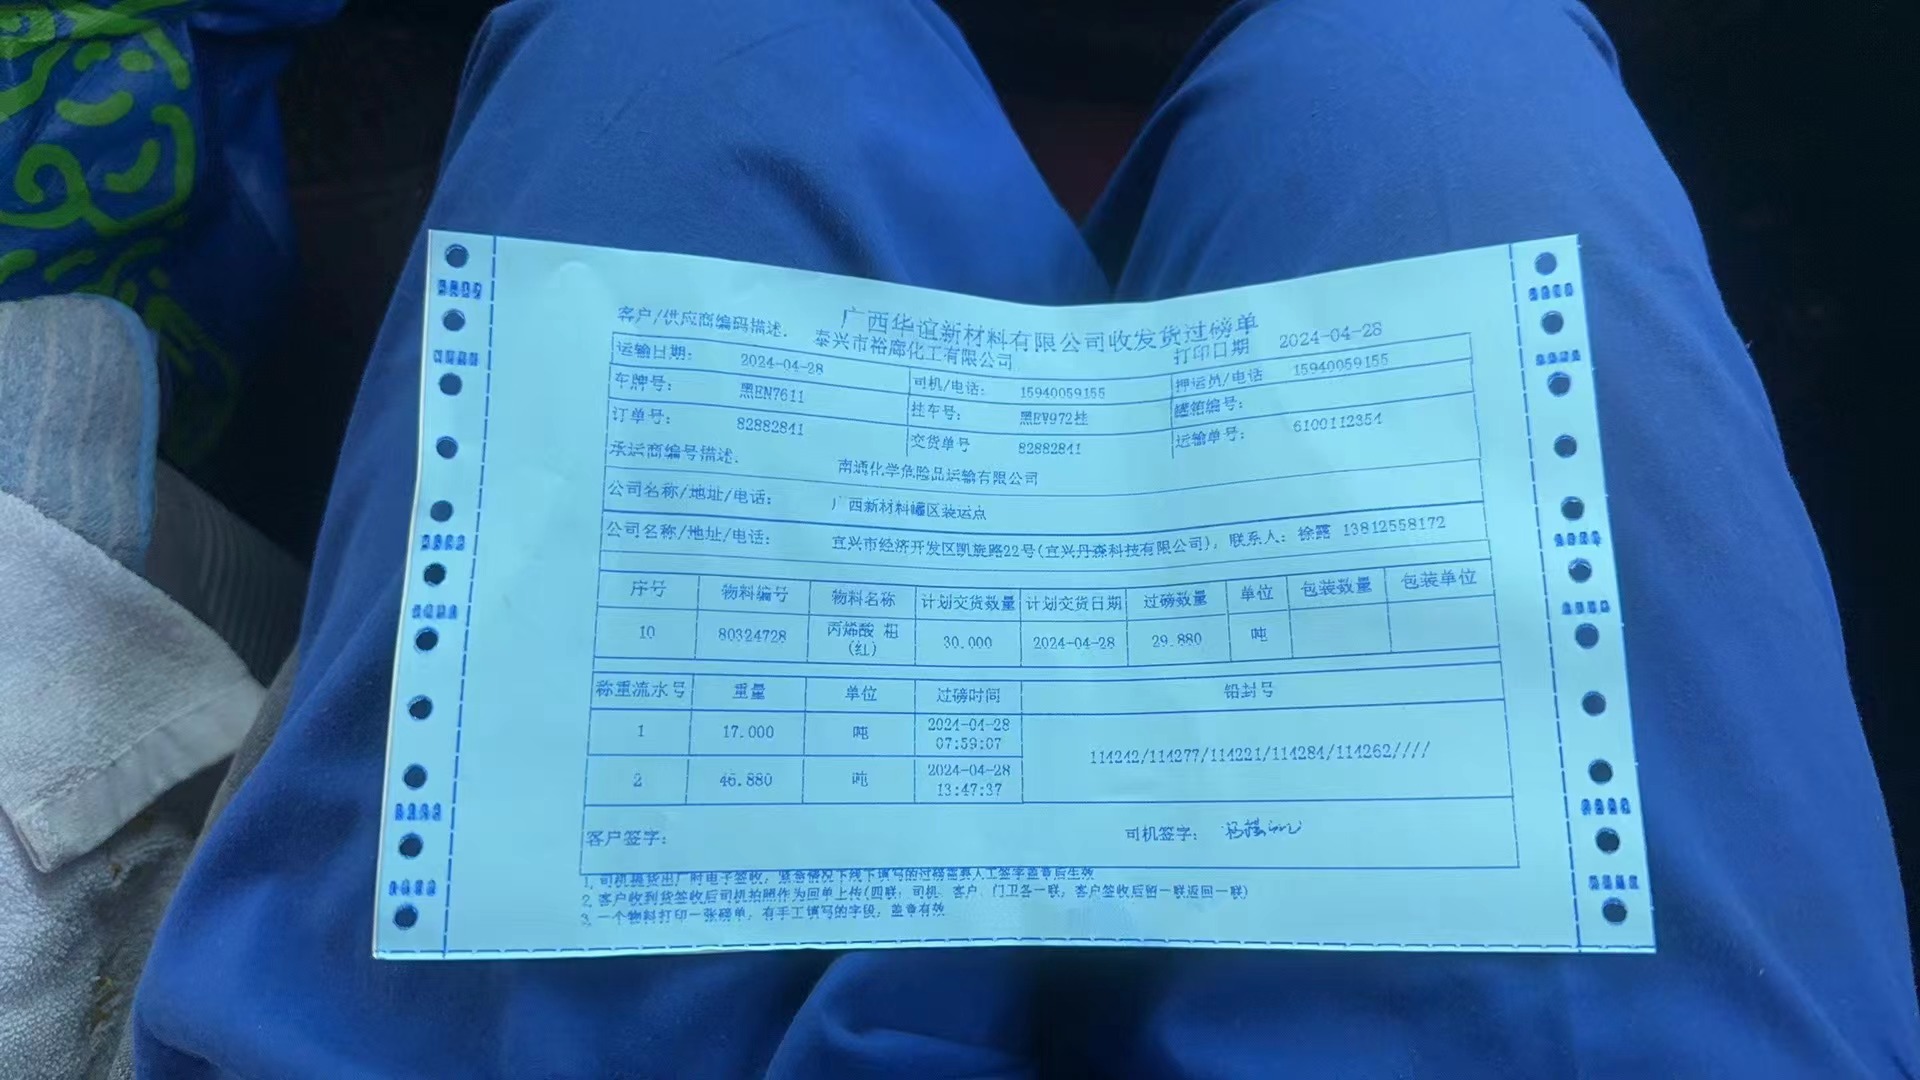 广西华谊新材料有限公司收发货过磅单
客户/供应商编码描述: 泰兴市裕廊化工有限公司 打印日期 2024-04-28
运输日期: 2024-04-28 司机/电话: 15940059155 押运员/电话 15940059155
车牌号: 黑EN7611 挂车号: 黑EV972挂 罐箱编号:
订单号: 82882841 交货单号 82882841 运输单号: 6100112354
承运商编号描述: 南通化学危险品运输有限公司
公司名称/地址/电话: 广西新材料罐区装运点
公司名称/地址/电话: 宜兴市经济开发区凯旋路22号(宜兴丹森科技有限公司), 联系人: 徐露 13812558172
序号 物料编号 物料名称 计划交货数量 计划交货日期 过磅数量 单位 包装数量 包装单位
10 80324728 丙烯酸 粗(红) 30.000 2024-04-28 29.880 吨
称重流水号 重量 单位 过磅时间 铅封号
1 17.000 吨 2024-04-28 07:59:07 114242/114277/114221/114284/114262////
2 46.880 吨 2024-04-28 13:47:37
客户签字: 司机签字:
1. 司机提货出厂时电子签收, 紧急情况下线下填写的过磅需要人工签字盖章后生效
2. 客户收到货签收后司机拍照作为回单上传(四联: 司机、客户、门卫各一联, 客户签收后留一联返回一联)
3. 一个物料打印一张磅单, 有手工填写的字段, 盖章有效